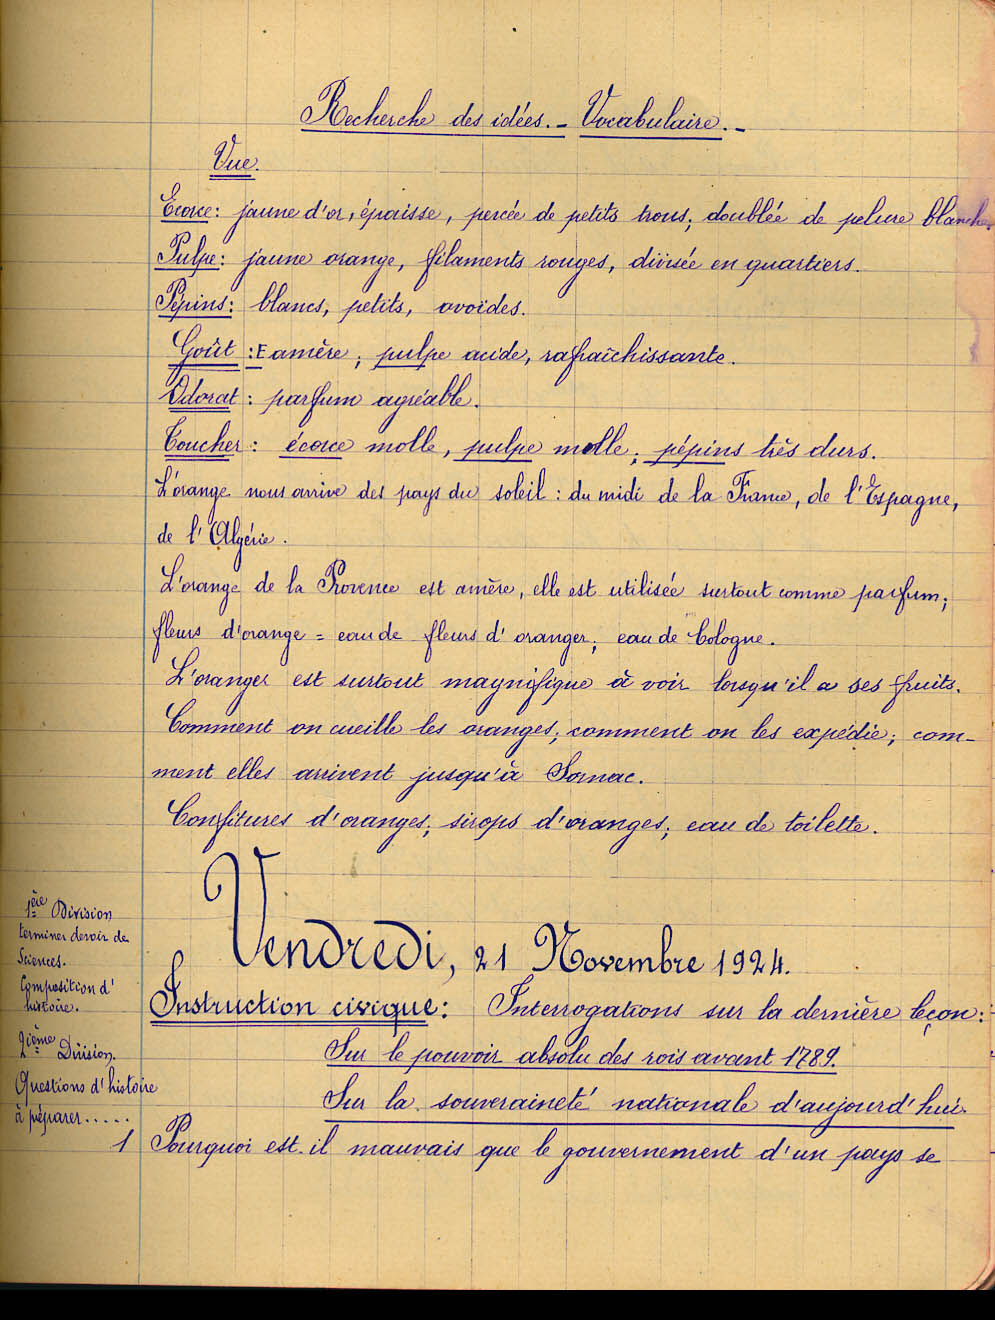 Recherche des idées. - Vocabulaire. -
Vue.
Ecorce : jaune d'or, épaisse, percée de petits trous, doublée de pelure blanche.
Pulpe : jaune orange, filaments rouges, divisée en quartiers.
Pépins : blancs, petits, ovoïdes.
Goût : E amère ; pulpe acide, rafraîchissante.
Odorat : parfum agréable.
Toucher : écorce molle, pulpe molle ; pépins très durs.
L'orange nous arrive des pays du soleil : du midi de la France, de l'Espagne,
de l'Algérie.
L'orange de la Provence est amère, elle est utilisée surtout comme parfum ;
fleurs d'orange = eau de fleurs d'oranger ; eau de Cologne.
L'oranger est surtout magnifique à voir lorsqu'il a ses fruits.
Comment on cueille les oranges ; comment on les expédie ; com-
ment elles arrivent jusqu'à Sornac.
Confitures d'oranges ; sirops d'oranges ; eau de toilette.
Vendredi, 21 Novembre 1924.
1ère Division
terminer devoir de
Sciences.
Composition d'
histoire.
2ième Division.
Questions d'histoire
à péparer.....
Instruction civique : Interrogations sur la dernière leçon :
Sur le pouvoir absolu des rois avant 1789.
Sur la souveraineté nationale d'aujourd'hui.
1 Pourquoi est-il mauvais que le gouvernement d'un pays se